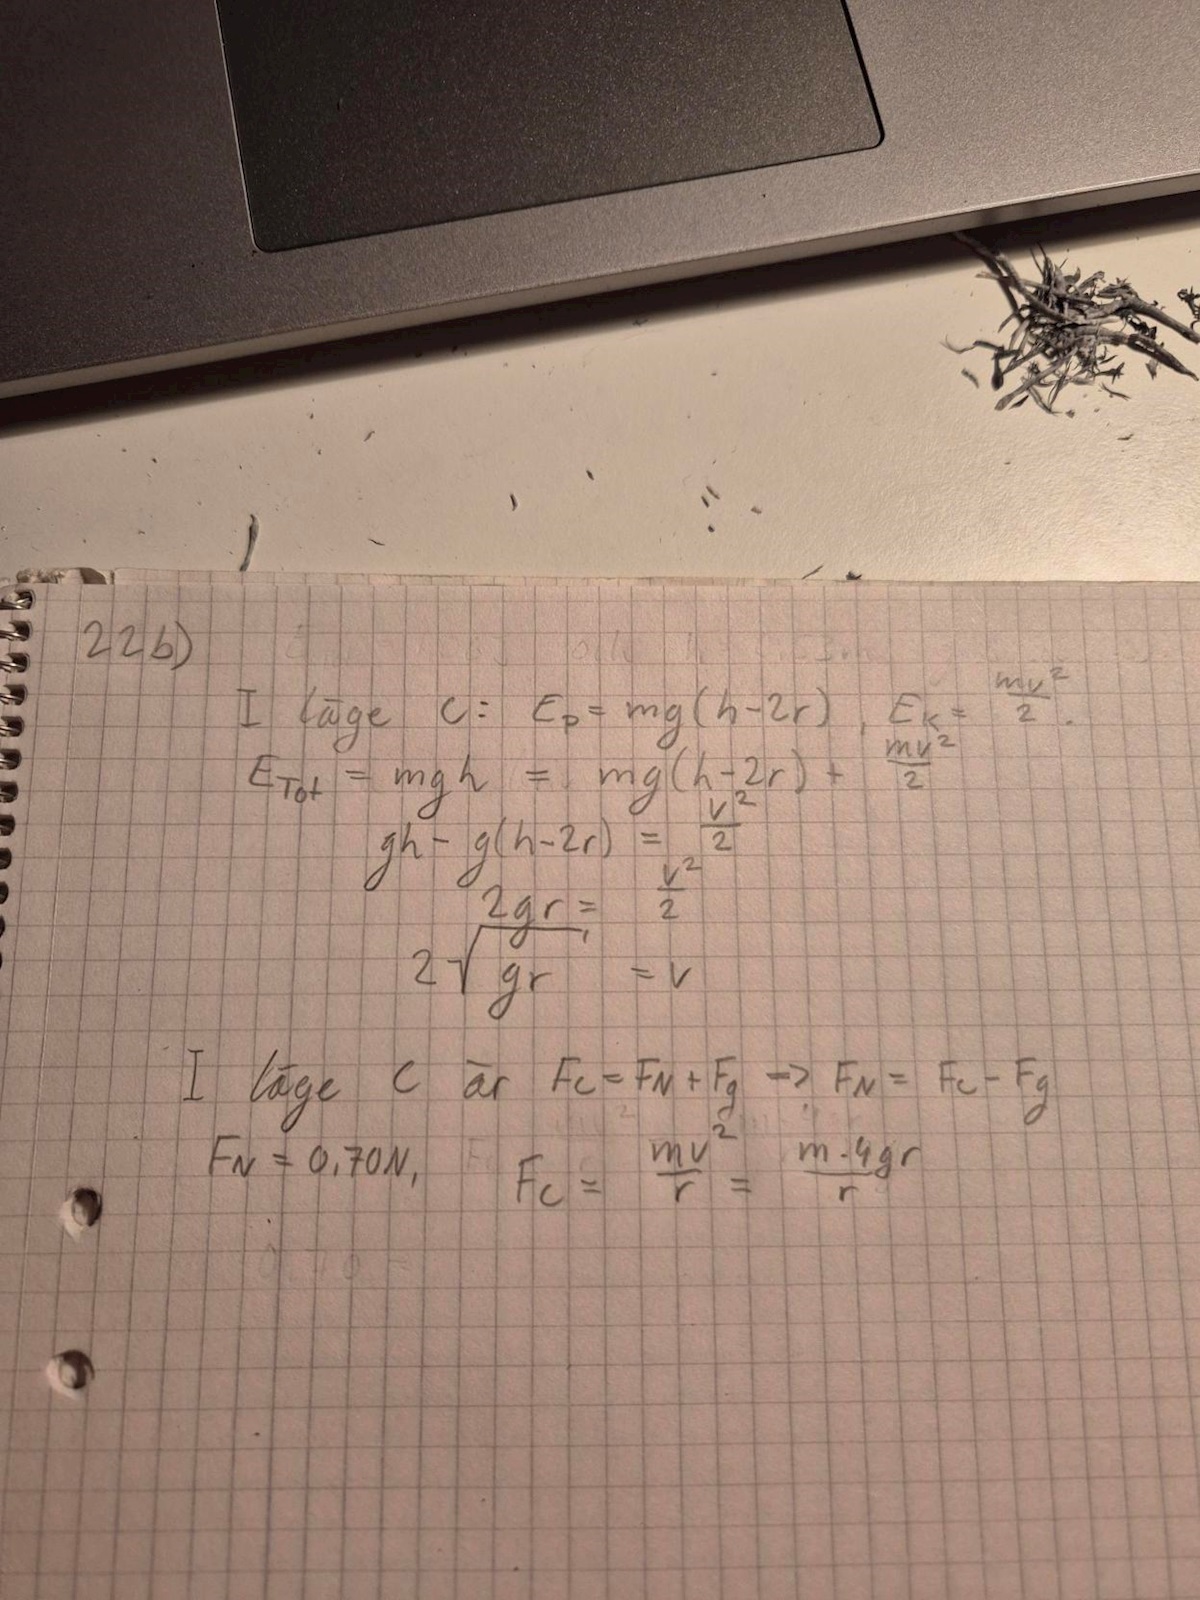 22b)
I läge C: Ep = mg(h-2r), Ek = mv²/2.
ETot = mgh = mg(h-2r) + mv²/2
gh - g(h-2r) = v²/2
2gr = v²/2
2√gr = v
I läge C är Fc = FN + Fg -> FN = Fc - Fg
FN = 0,70N, Fc = mv²/r = m·4gr/r